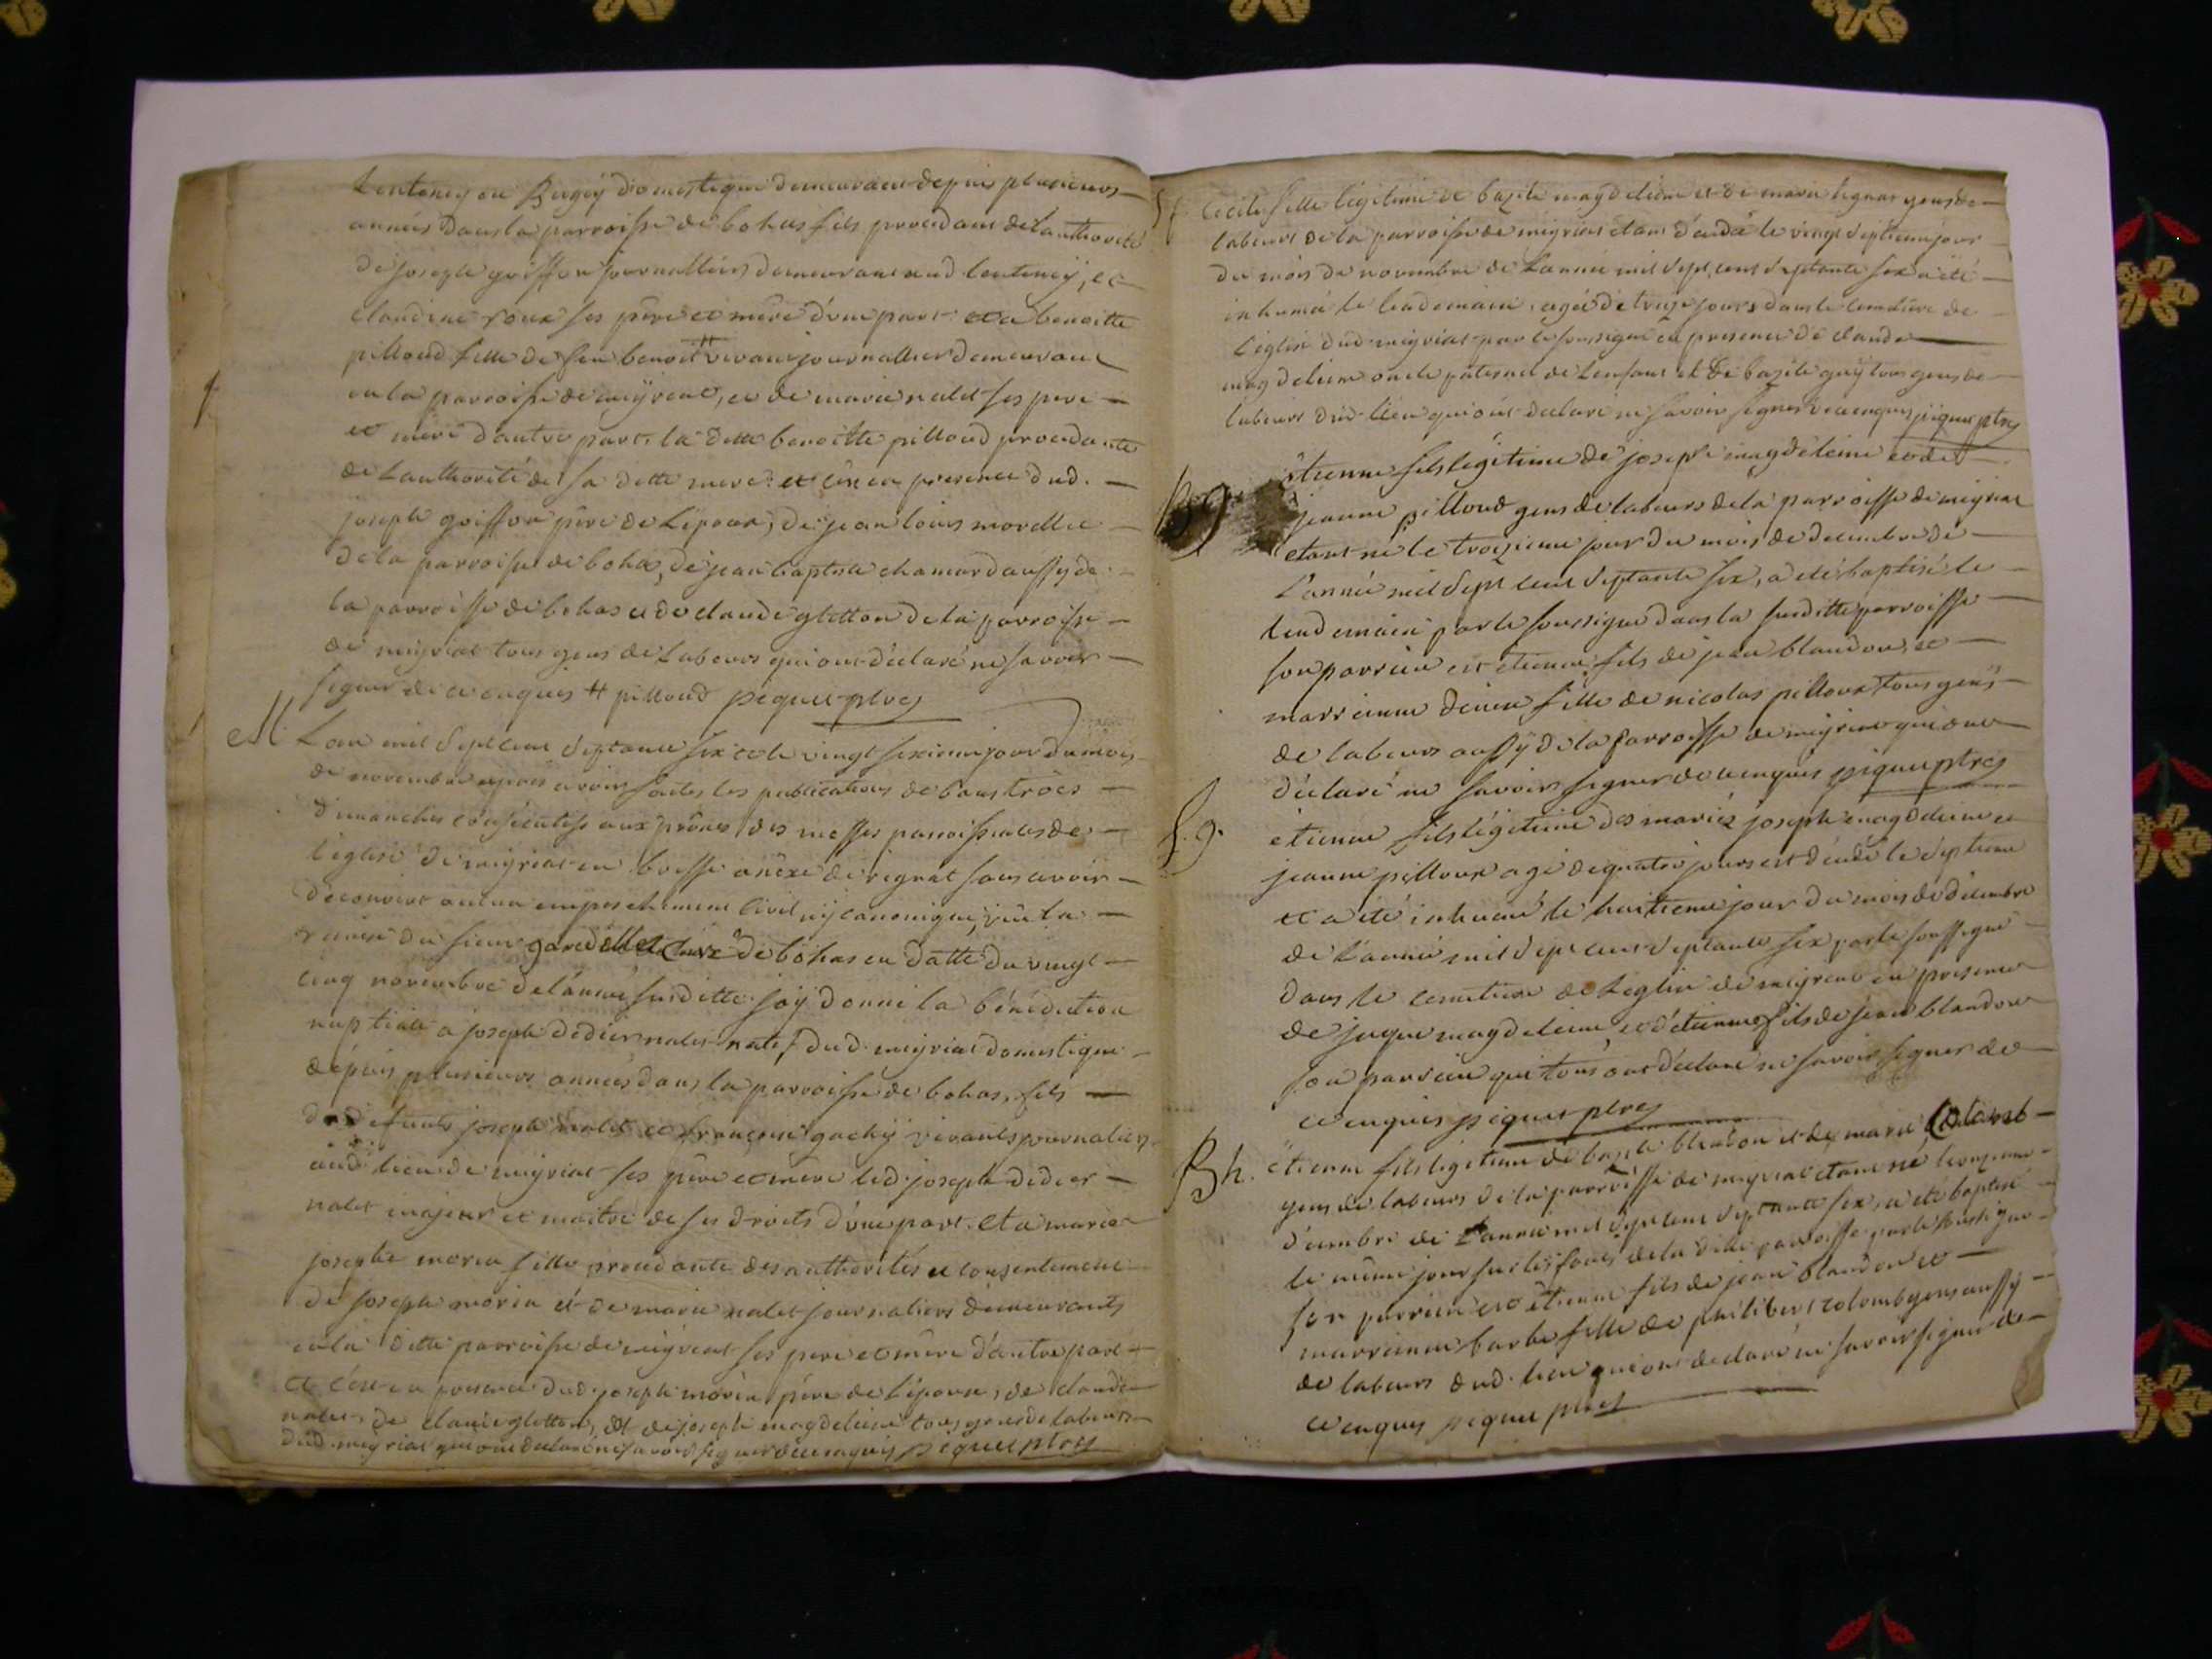 Lenteney en Bugey domestique demeurant depuis plusieurs
années dans la parroisse de bohas fils procedant de lauthorité
de joseph goiffon journallier demeurant aud lenteney, et
claudine roux ses père et mère d'une part et a benoitte
pilloud fille de feu benoit # vivant journallier demeurant
en la parroisse de meyriat, et de marie nalet ses pere
et mère dautre part. la ditte benoitte pilloud procedante
de Lauthorité de sa ditte mere. et c'est en presence dud.
joseph goiffon père de L'epoux, de jean louis morellet
de la parroisse de bohas, de jean baptiste chamard aussy de
la parroisse de bohas et de claude gletton de la parroisse
de meyriat tous gens de Labeurs qui ont déclaré ne savoir
signer de ce enquis # pilloud piquet ptre
M Lan mil Sept cent Septante six et le vingt sixieme jour du mois
de novembre apres avoir faites les publications de bans trois
dimanches consécutifs aux prônes des messes parroissiales de
léglise de meyriat en bresse anèxe de rignat sans avoir
découvert aucun empeschement civil ny canonique, vû la
remise du sieur curé de bohas en datte du vingt
cinq novembre de lannée susditte. j'ay donné la bénédiction
nuptiale a joseph didier nalet natif dud. meyriat domestique
dépuis plusieurs années dans la parroisse de bohas, fils
de défunts joseph nalet et françoise gachy vivants journaliers
aud. lieu de meyriat ses père et mere led. joseph didier
nalet majeur et maitre de ses droits d'une part. Et a marie
josephe morin fille procedante des authorités et consentement
de joseph morin et de marie nalet journaliers demeurants
en la ditte parroisse de meyriat ses pere et mère d'autre part
et c'est en presence dud. joseph morin père de l'épouse, de claude
nalet, de claude gletton, et de joseph magdeleine tous gens de labeurs
dud. meyriat qui ont declaré ne savoir signer de ce enquis piquet ptre
Sf Cecile fille légitime de bazile magdeleine et de marie gens de
labeurs de la parroisse de meyriat étant décédé le vingt septieme jour
du mois de novembre de Lannée mil sept cent septante six a été
inhumé le lendemain, agée de treize jours dans le cemetière de
l'église dud. meyriat par le soussigné en presence de claude
magdeleine oncle paternel de Lenfant et de bazile guy tous gens de
labeurs dud. lieu qui ont declaré ne savoir signer de ce enquis piquet ptre
Bg étienne fils légitime de joseph magdeleine et de
jeanne pilloud gens de labeurs de la parroisse de meyriat
etant né le troizieme jour du mois de decembre de
l'année mil sept cent septante six, a été baptisé le
lendemain par le soussigné dans la susditte parroisse
son parrein est etienne fils de jean blandon, et
marreinne denise fille de nicolas pilloux tous gens
de labeurs aussy de la parroisse de meyriat qui ont
déclaré ne savoir signer de ce enquis piquet ptre
S.g. etienne fils légitime des mariéz joseph magdeleine et
jeanne pilloux agé de quatre jours est décédé le septieme
et a été inhumé le huitieme jour du mois de décembre
de L'année mil sept cent septante six par le soussigné
dans le cemetiere de Leglise de meyriat en presence
de magdeleine, et d'étienne fils de jean blandon
son parrein qui tous ont déclaré ne savoir signer de
ce enquis piquet ptre
Bh. étienne fils légitime de bazile blandon et de marie Colomb
gens de labeurs de la parroisse de meyriat étant né le onzieme
décembre de L'année mil sept cent septante six, a été baptisé
le même jour sur les fonts de la ditte parroisse par le soussigné
son parrein est étienne fils de jean blandon et
marreinne barbe fille de philibert colomb gens aussy
de labeurs dud. lieu qui ont declaré ne savoir signer de
ce enquis piquet ptre